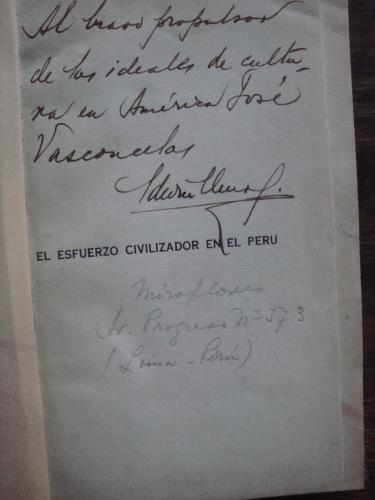 Al bravo propulsor
de los ideales de cultu-
ra en América José
Vasconcelos
EL ESFUERZO CIVILIZADOR EN EL PERU
Miraflores
Av. Progreso Nº 373
(Lima - Perú)